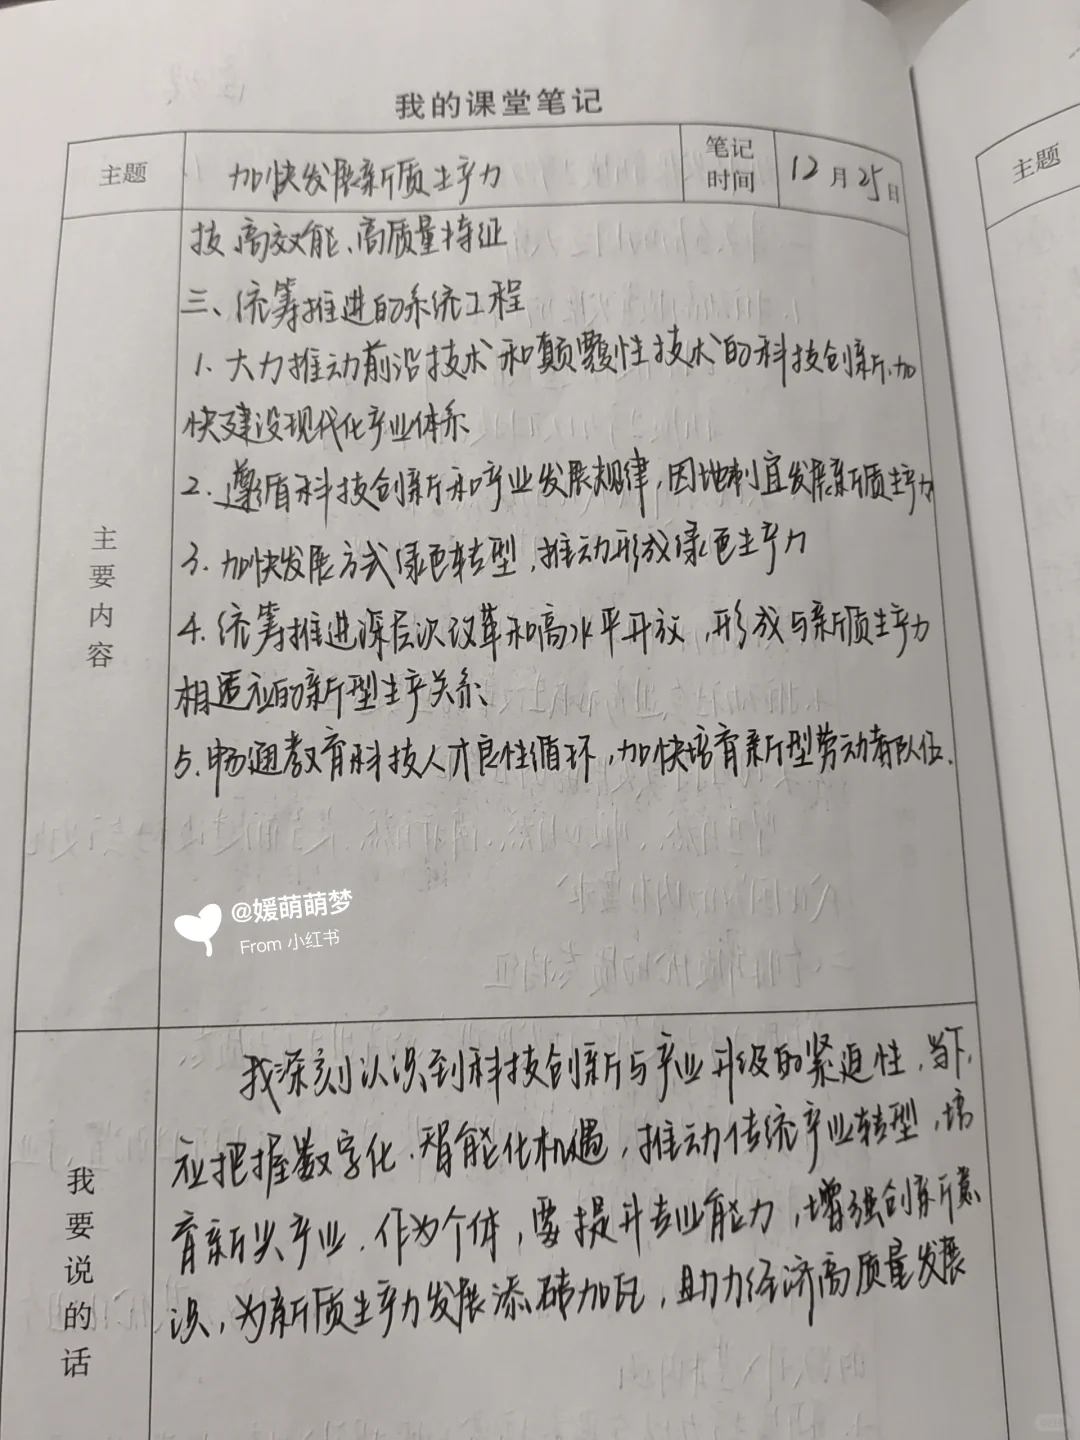 我的课堂笔记
主题
加快发展新质生产力
笔记
时间
12月25日
主题
技、高效能、高质量特征
三、统筹推进的系统工程
1. 大力推动前沿技术和颠覆性技术的科技创新、加
快建设现代化产业体系
2. 遵循科技创新和产业发展规律,因地制宜发展新质生产力
3. 加快发展方式绿色转型,推动形成绿色生产力
4. 统筹推进深层次改革和高水平开放,形成与新质生产力
相适应的新型生产关系
5. 畅通教育科技人才良性循环,加快培育新型劳动者队伍.
主要内容
@媛萌萌梦
From 小红书
我深刻认识到科技创新与产业升级的紧迫性,当下,
应把握数字化、智能化机遇,推动传统产业转型,培
育新兴产业.作为个体,要提升专业能力,增强创新意
识,为新质生产力发展添砖加瓦,助力经济高质量发展
我要说的话